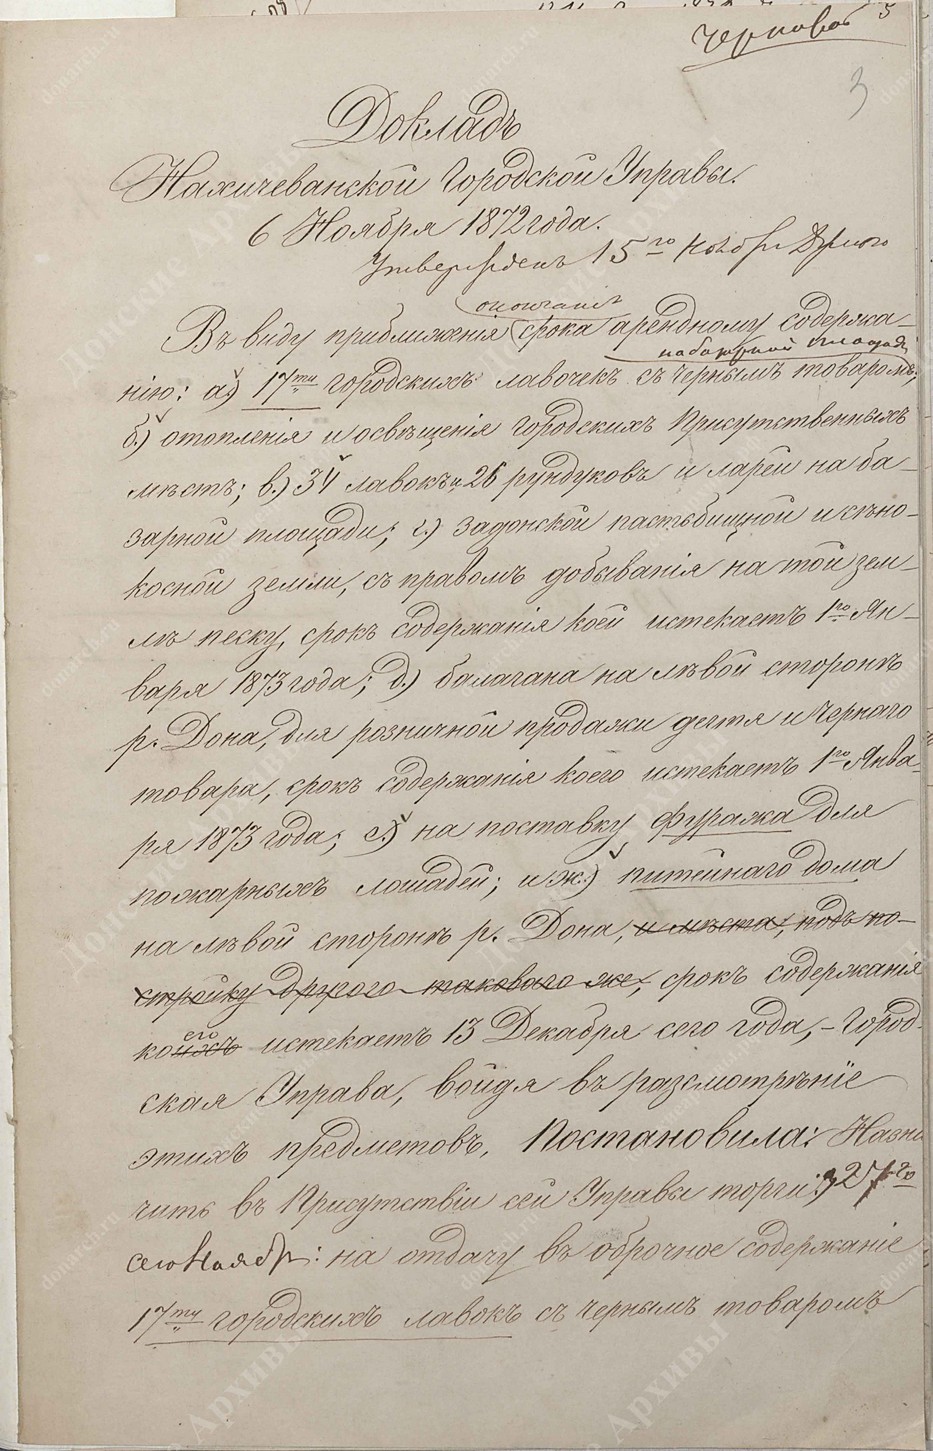 Черновой
5
3
Докладъ
Нахичеванской Городской Управы.
6 Ноября 1872 года.
Утвержденъ 15го Ноября
окончанія
Въ виду приближенія срока арендному содержа-
на базарной площади
нію: а) 17ти городскихъ лавочекъ съ чернымъ товаромъ;
б.) отопленія и освѣщенія городскихъ Присутственныхъ
мѣстъ; в.) 34 лавокъ и 26 рундуковъ и ларей на ба-
зарной площади; г.) задонской пастьбищной и сѣно-
косной земли, съ правомъ добыванія на той зем-
лѣ песку, срокъ содержанія коей истекаетъ 1го Ян-
варя 1873 года; д.) балагана на лѣвой сторонѣ
р. Дона, для розничной продажи дегтя и чернаго
товара, срокъ содержанія коего истекаетъ 1го Янва-
ря 1873 года; е.) на поставку фуража для
пожарныхъ лошадей; и ж.) питейнаго дома
на лѣвой сторонѣ р. Дона, и мѣста, подъ по-
стройку другого таковаго же, срокъ содержанія
его
коихъ истекаетъ 13 Декабря сего года, – Город-
ская Управа, войдя въ разсмотрѣніе
этихъ предметовъ, Постановила: Назна
чить въ Присутствіи сей Управы торги: 27го
сего Ноября: на отдачу въ оброчное содержаніе
17ти городскихъ лавокъ съ чернымъ товаромъ